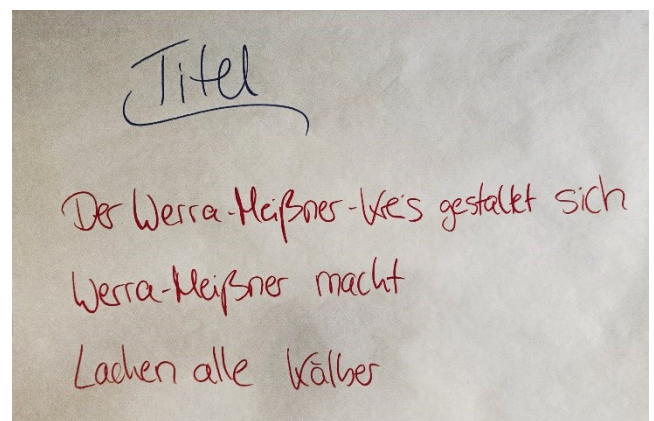 Titel
Der Werra-Meißner-Kreis gestaltet sich
Werra-Meißner macht
Lachen alle Kälber